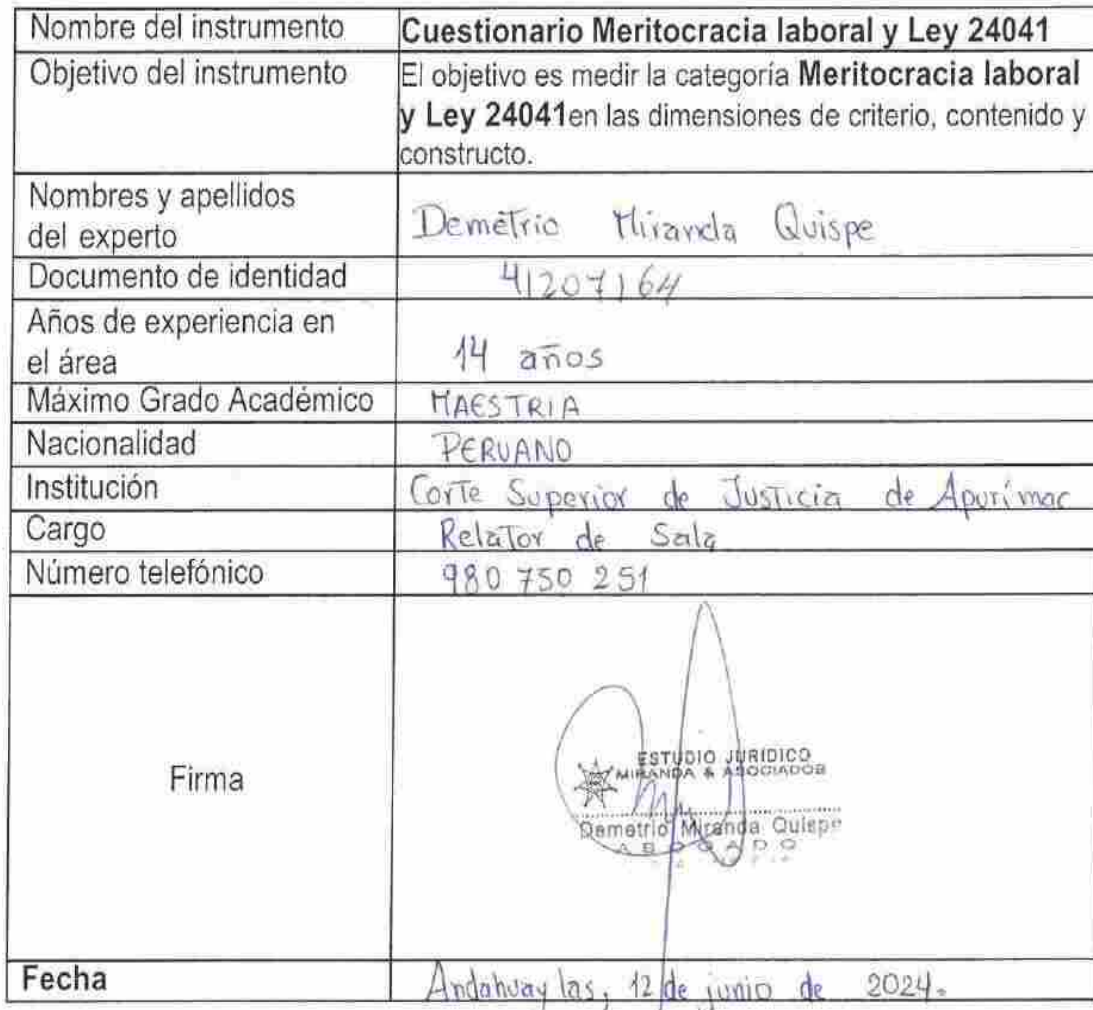 Nombre del instrumento
Cuestionario Meritocracia laboral y Ley 24041
Objetivo del instrumento
El objetivo es medir la categoría Meritocracia laboral
y Ley 24041en las dimensiones de criterio, contenido y
constructo.
Nombres y apellidos
del experto
Demetrio Miranda Quispe
Documento de identidad
41207164
Años de experiencia en
el área
14 años
Máximo Grado Académico
MAESTRIA
Nacionalidad
PERUANO
Institución
Corte Superior de Justicia de Apurímac
Cargo
Relator de Sala
Número telefónico
980 750 251
Firma
ESTUDIO JURIDICO
MIRANDA & ASOCIADOS
Demetrio Miranda Quispe
ABOGADO
Fecha
Andahuaylas, 12 de junio de 2024.